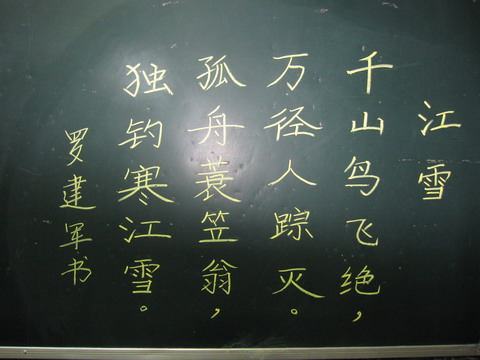 江雪
千山鸟飞绝，
万径人踪灭。
孤舟蓑笠翁，
独钓寒江雪。
罗建军书